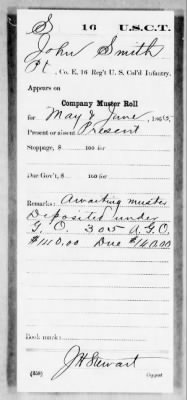 S 16 U.S.C.T.
John Smith
Pt, Co. E, 16 Reg't U. S. Col'd Infantry.
Appears on
Company Muster Roll
for May & June, 1865.
Present or absent Present
Stoppage, $ 100 for
Due Gov't, $ 100 for
Remarks: Awaiting muster
Deposited under
G. O. 305 A.G.O.
$110.00 Due $140.00
Book mark:
J H Stewart
(358) Copyist.